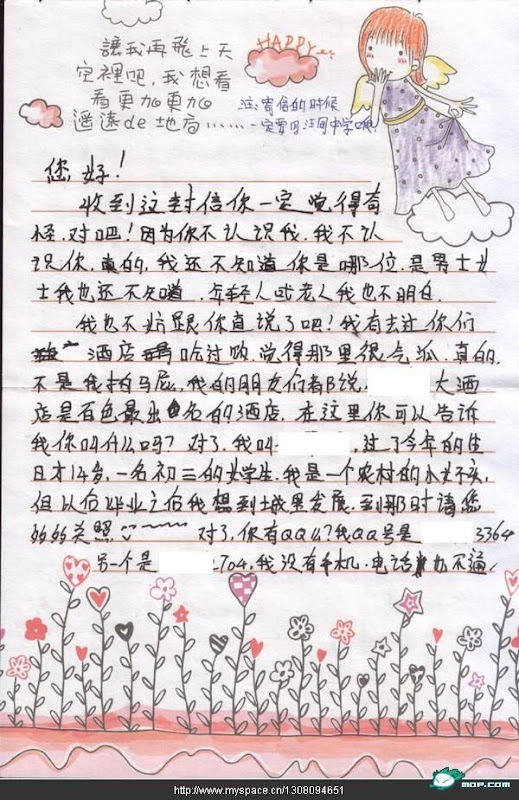 讓我再飛上天
空裡吧,我想看
看更加更加
遥遠de地方……
HAPPY
注:寄信的时候
一定要用江同中学哦!
您好!
收到这封信你一定觉得奇
怪,对吧!因为你不认识我,我不认
识你,真的,我还不知道你是哪位,是男士女
士我也还不知道,年轻人或老人我也不明白.
我也不妨跟你直说了吧!我有去过你们
酒店吃过哟,觉得那里很气派,真的,
不是我拍马屁,我的朋友们都说, 大酒
店是百色最出名的酒店,在这里你可以告诉
我你叫什么吗?对了,我叫 ,过了今年的生
日才14岁,一名初三的女学生.我是一个农村的小女孩,
但以后毕业之后我想到城里发展.到那时请您
多多关照 对了,你有QQ么?我QQ号是 3364
另一个是 704.我没有手机,电话也不通,
http://www.myspace.cn/1308094651
MOP.COM